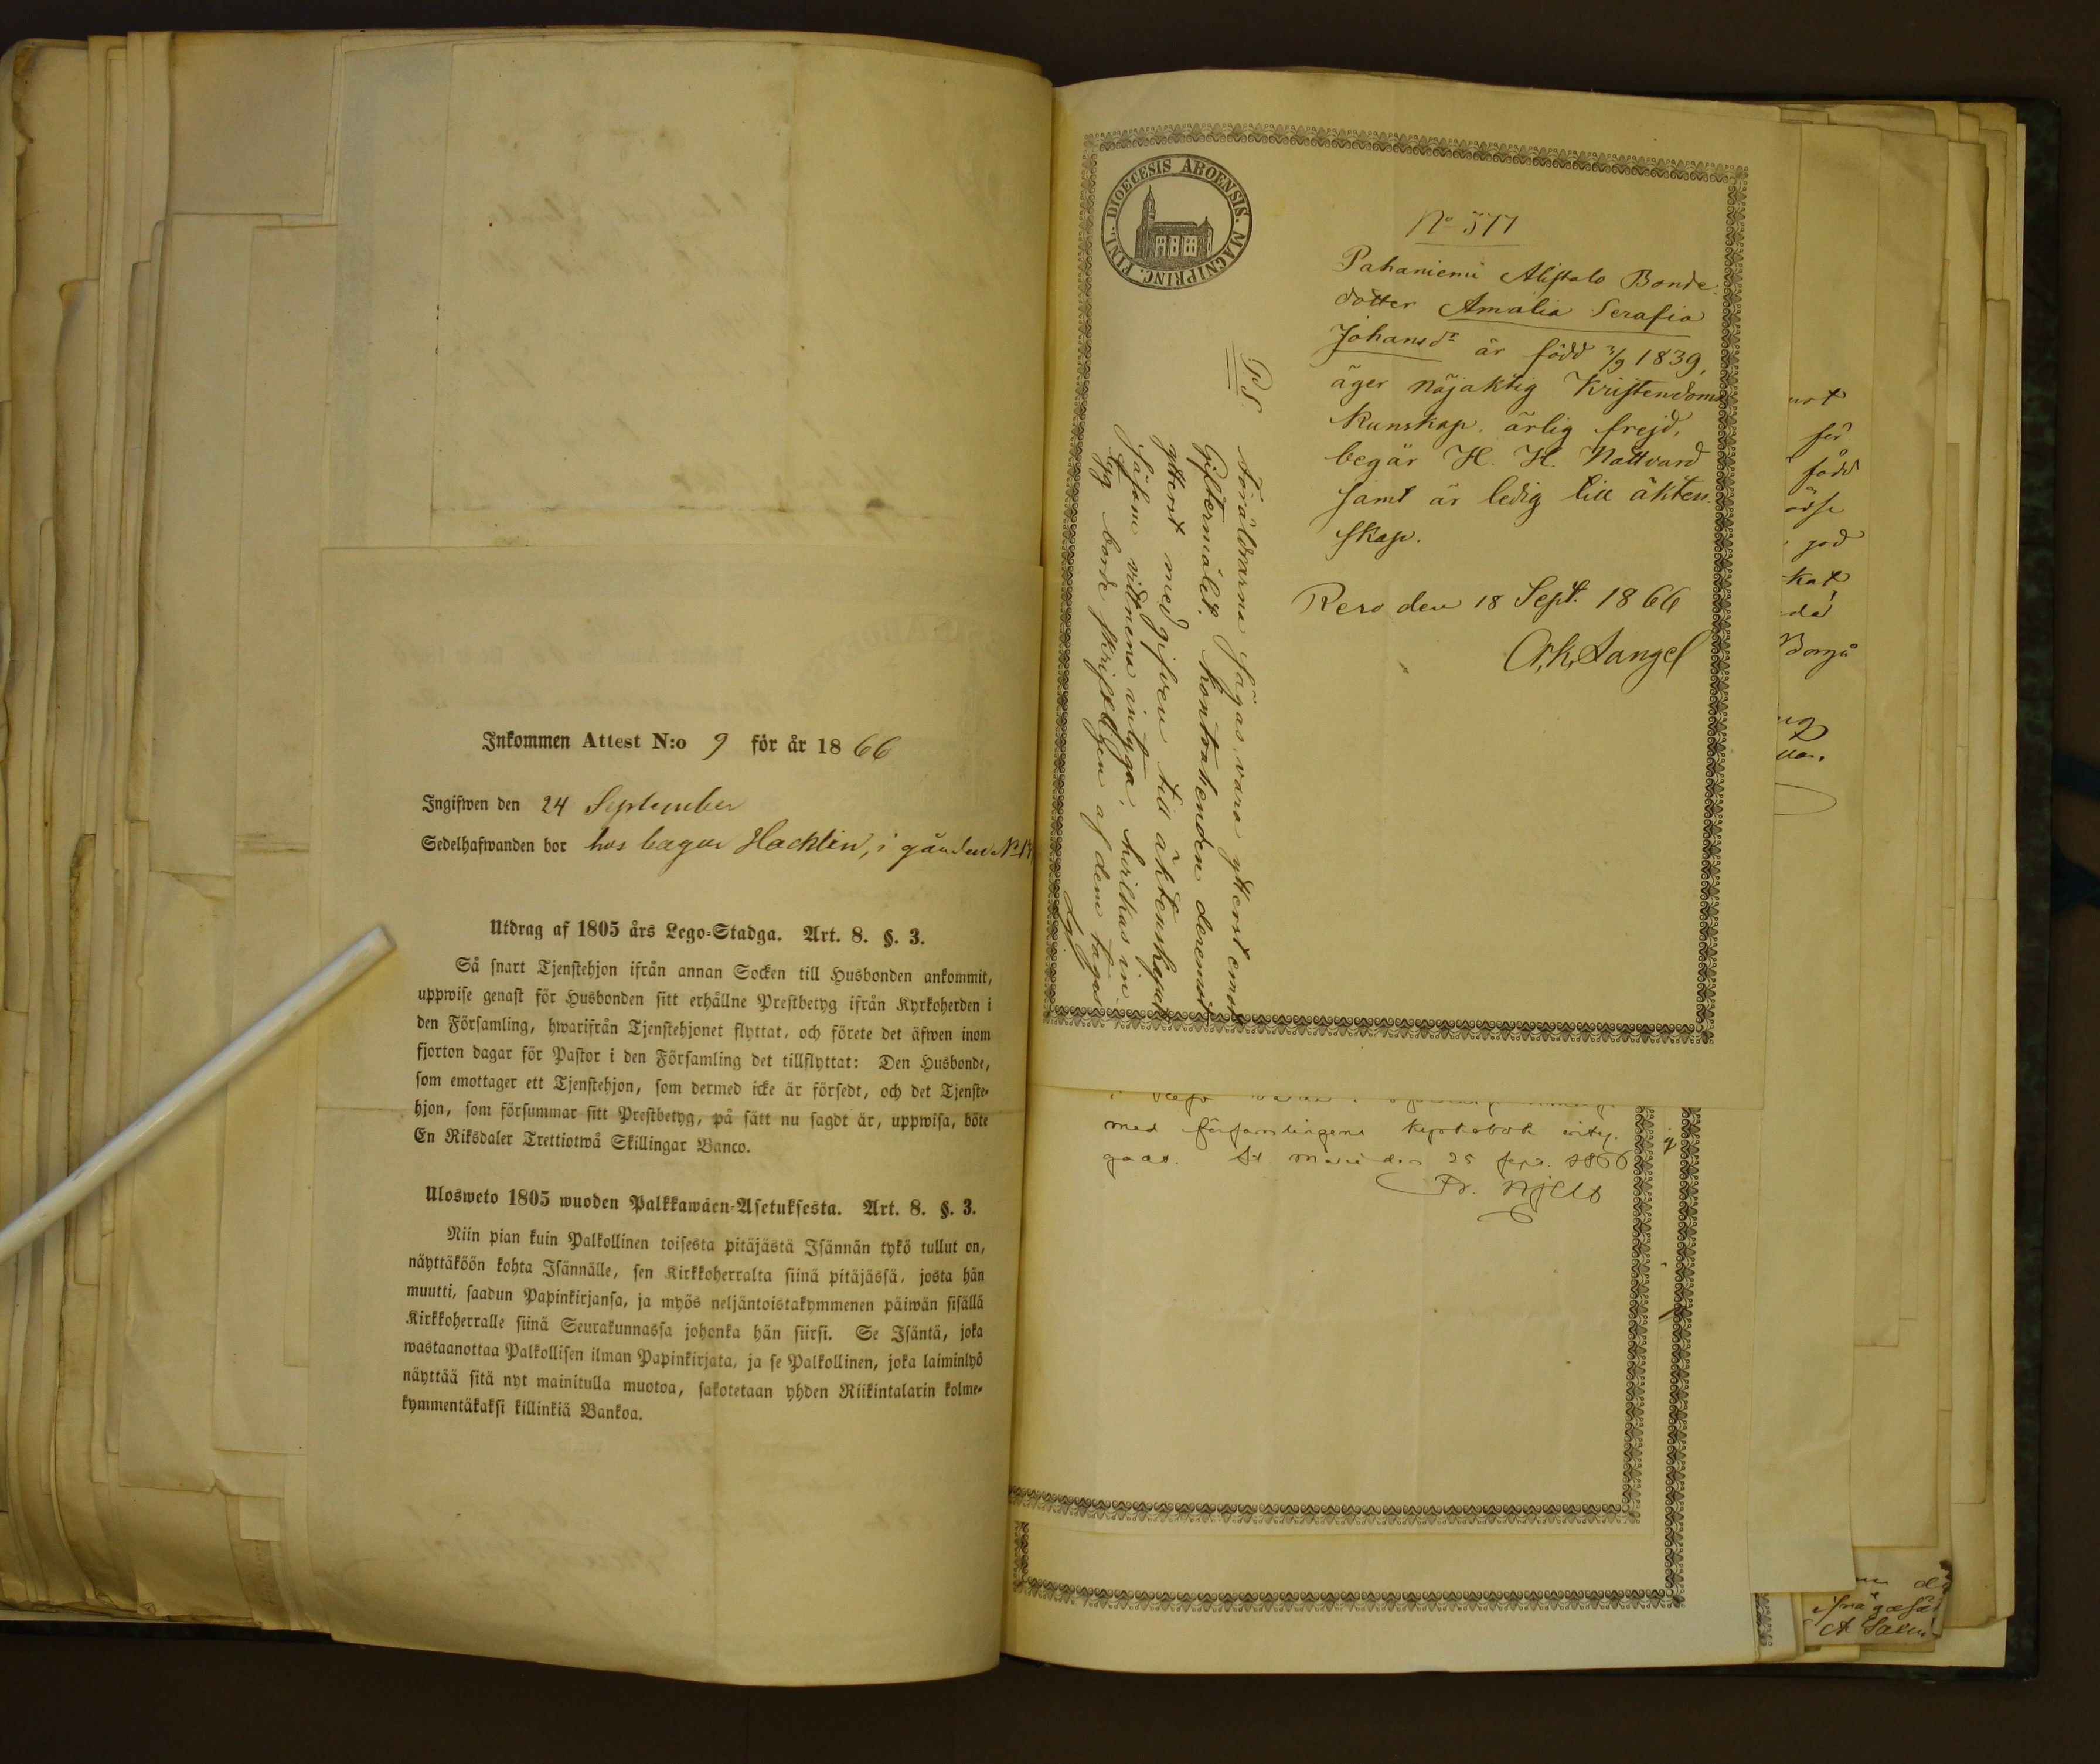 Inkommen Attest N:o 9 för år 1866
Ingifwen den 24 September
Sedelhafwanden bor hos bagar Hacklin, i gården No
Utdrag af 1805 års Lego-Stadga. Art. 8. §. 3.
Så snart Tjenstehjon ifrån annan Socken till Husbonden ankommit,
uppwise genast för Husbonden sitt erhållne Prestbetyg ifrån Kyrkoherden i
den Församling, hwarifrån Tjenstehjonet flyttat, och förete det äfwen inom
fjorton dagar för Pastor i den Församling det tillflyttat: Den Husbonde,
som emottager ett Tjenstehjon, som dermed icke är försedt, och det Tjenste-
hjon, som försummar sitt Prestbetyg, på sätt nu sagdt är, uppwisa, böte
En Riksdaler Trettiotwå Skillingar Banco.
Ulosweto 1805 wuoden Palkkawäen-Asetuksesta. Art. 8. §. 3.
Niin pian kuin Palkollinen toisesta pitäjästä Isännän tykö tullut on,
näyttäköön kohta Isännälle, sen Kirkkoherralta siinä pitäjässä, josta hän
muutti, saadun Papinkirjansa, ja myös neljäntoistakymmenen päiwän sisällä
Kirkkoherralle siinä Seurakunnassa johonka hän siirsi. Se Isäntä, joka
wastaanottaa Palkollisen ilman Papinkirjata, ja se Palkollinen, joka laiminlyö
näyttää sitä nyt mainitulla muotoa, sakotetaan yhden Riikintalarin kolme-
kymmentäkaksi killinkiä Bankoa.
DIOECESIS ABOENSIS. MAGNIPRINC. FINL.
No 577
Pahaniemi Alistalo Bonde
dotter Amalia Serafia
Johansdr är född 3/9 1839,
äger nöjaktig Kristendoms
kunskap, ärlig frejd,
begår H. H. Nattvard
samt är ledig till äkten-
skap.
Reso den 18 Sept. 1866
P.S. Föräldrarna sägas vara ytterst emot
Giftermålet. Kontrahenden deremot
ytterst medgifven till äktenskapet
såsom vittnena intyga, hvilkas in
tyg borde skrifteligen af dem tagas
med församlingens kyrkobok inty-
gas. St. Marie den 25 sept. 1866